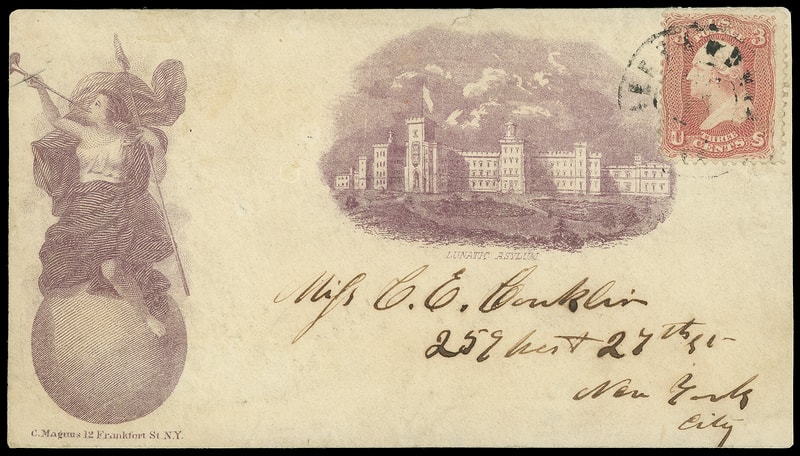 U.S. POSTAGE 3
THREE
CENTS
U S
LUNATIC ASYLUM
Miss C. E. Conklin
259 West 27th St
New York
City
C. Magnus 12 Frankfort St. N.Y.